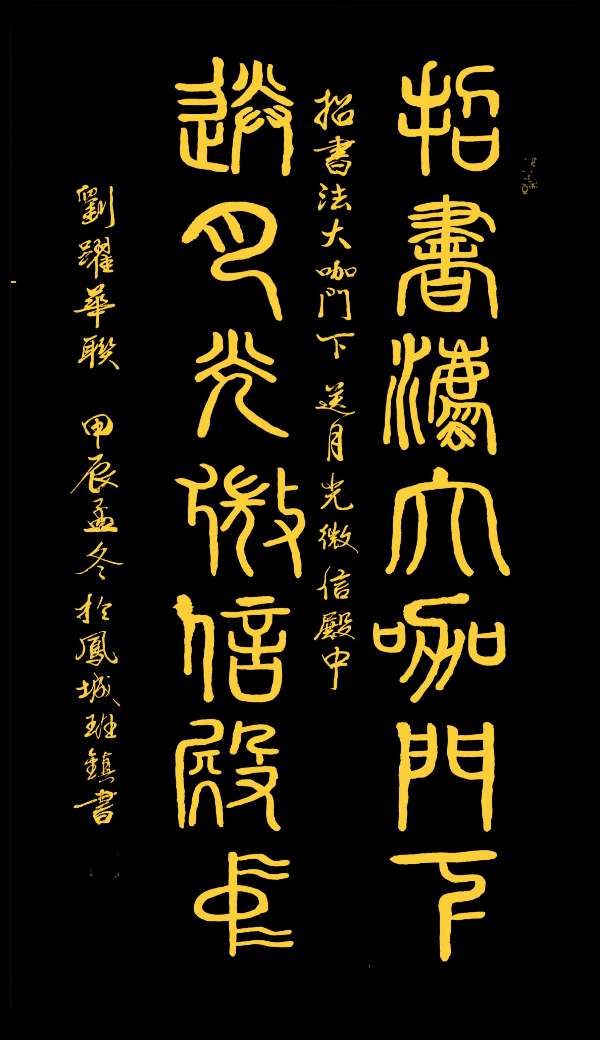 招書灋大咖門下
招書法大咖門下 送月光微信殿中
送月光微信殿中
劉躍華聯 甲辰孟冬於鳳城鎮書